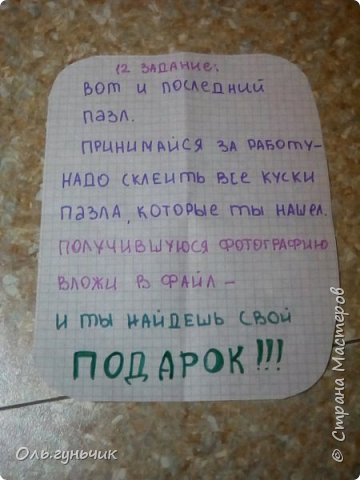 12 ЗАДАНИЕ:
ВОТ И ПОСЛЕДНИЙ
ПАЗЛ.
ПРИНИМАЙСЯ ЗА РАБОТУ-
НАДО СКЛЕИТЬ ВСЕ КУСКИ
ПАЗЛА, КОТОРЫЕ ТЫ НАШЕЛ.
ПОЛУЧИВШУЮСЯ ФОТОГРАФИЮ
ВЛОЖИ В ФАЙЛ -
И ТЫ НАЙДЕШЬ СВОЙ
ПОДАРОК!!!
Оль.гуньчик
© Страна Мастеров